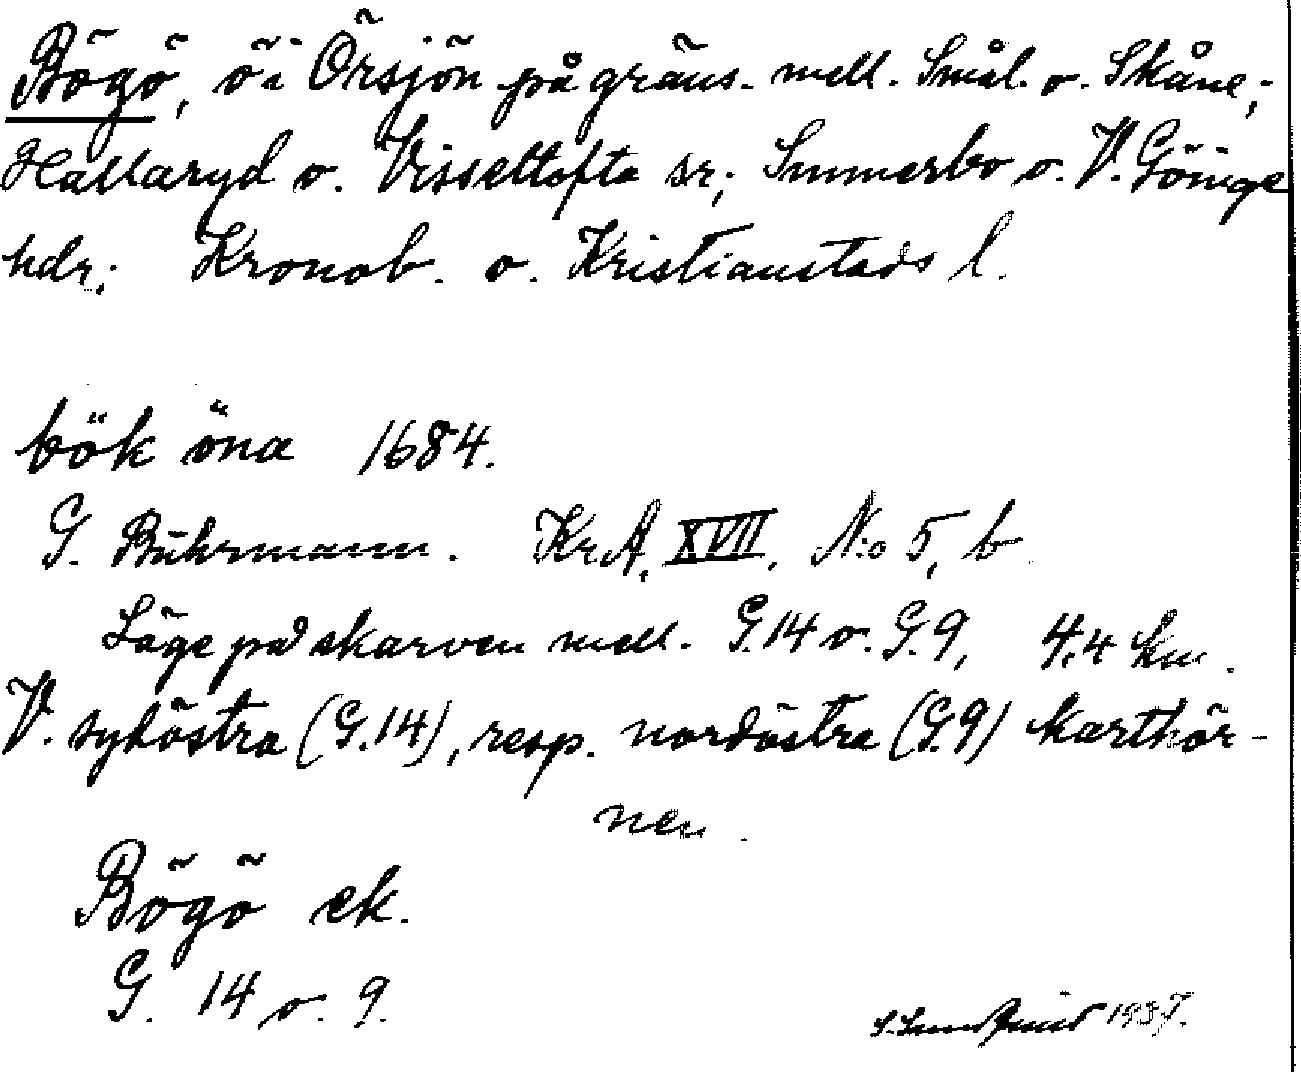 Bögö, ö i Örsjön på gräns. mell. Smål. o. Skåne;
Hallaryd o. Visseltofta sr; Sunnerbo o. V. Göinge
hdr; Kronob. o. Kristianstads l.
bök öna 1684.
G. Buhrmann. KrA, XVII, N:o 5, b
Läge på skarven mell. G.14 o. G.9, 4,4 km.
V. sydöstra (G.14), resp. nordöstra (G.9) karthör-
nen.
Bögö ek.
G. 14 o. 9.
1937.